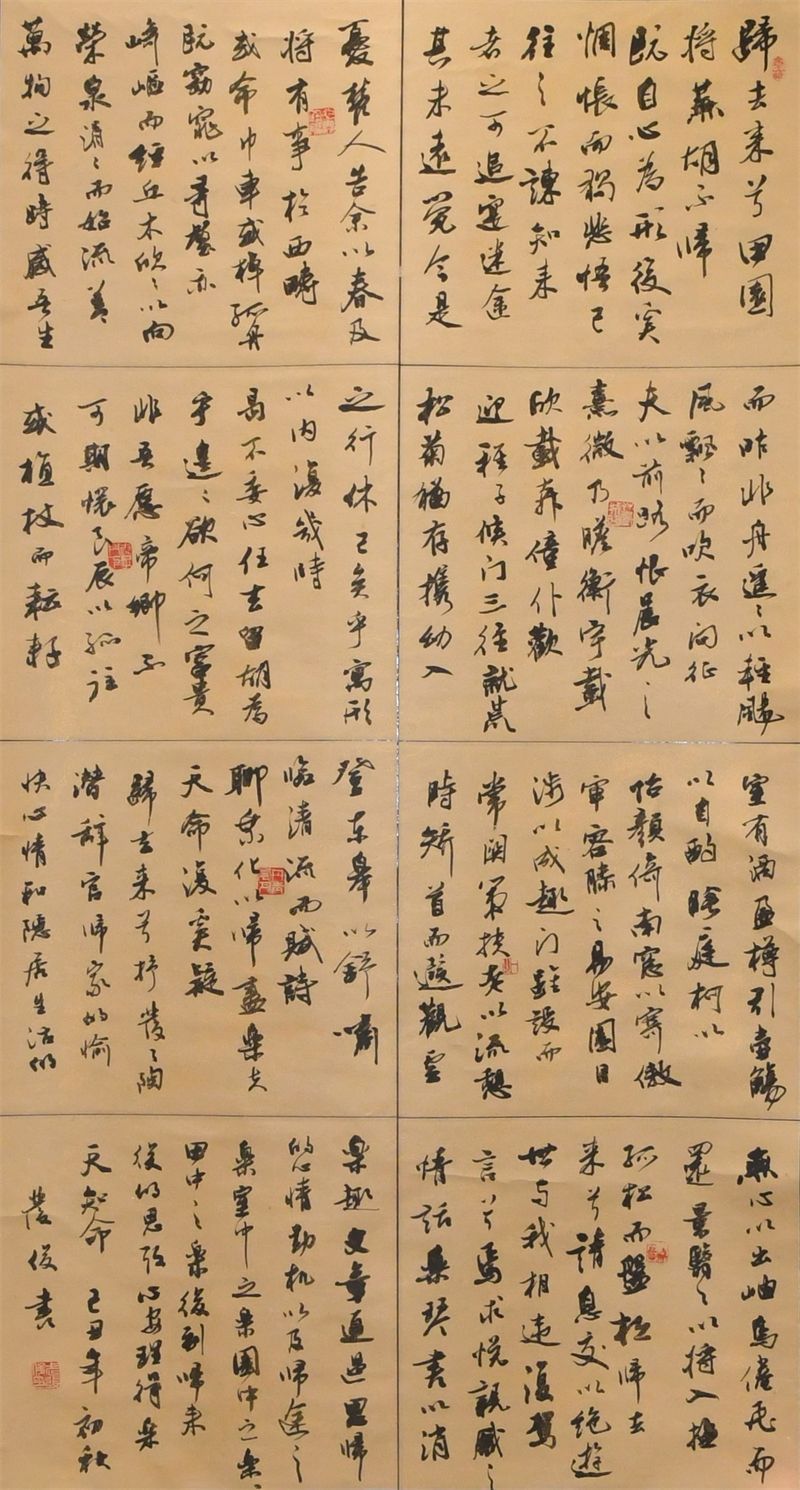 歸去来兮田園
将蕪胡不帰
既自心為形役奚
惆悵而獨悲悟已
往之不諫知来
者之可追寔迷途
其未遠覺今是
而昨非舟遥遥以軽颺
風飄飄而吹衣问征
夫以前路恨晨光之
熹微乃瞻衡宇載
欣載奔僮仆歡
迎稚子候门三径就荒
松菊猶存携幼入
室有酒盈樽引壶觴
以自酌眄庭柯以
怡顔倚南窓以寄傲
审容膝之易安園日
涉以成趣门雖設而
常関策扶老以流憩
時矫首而遐觀雲
無心以出岫鸟倦飛而
還景翳翳以将入撫
孤松而盤桓帰去
来兮請息交以绝遊
世与我相违復駕
言兮焉求悦親戚之
情話楽琴書以消
憂農人告余以春及
将有事於西疇
或命巾車或棹孤舟
既窈窕以尋壑亦
崎嶇而経丘木欣欣以向
榮泉涓涓而始流羡
萬物之得時感吾生
之行休已矣乎寓形
以内復幾時
曷不委心任去留胡為
乎遑遑欲何之富貴
非吾愿帝鄉不
可期懷良辰以孤往
或植杖而耘耔
登东皋以舒嘯
临清流而賦詩
聊乘化以帰盡樂夫
天命復奚疑
歸去来兮抒发之陶
潜辞官帰家的愉
快心情和隐居生活的
樂趣文章通过田帰
的心情动机以及帰途之
樂室中之樂園中之樂
田中之樂復到帰来
後的思考心安理得樂
天知命 己丑年初秋
俊書